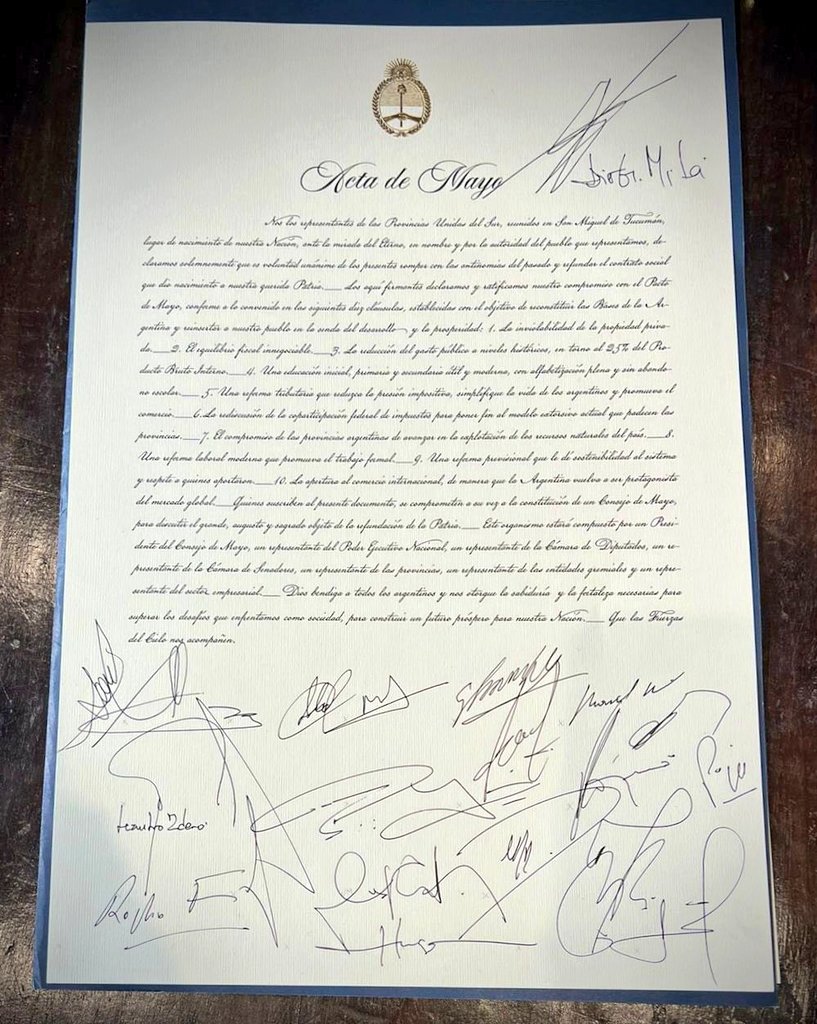 Acta de Mayo
Nos los representantes de las Provincias Unidas del Sur, reunidos en San Miguel de Tucumán,
lugar de nacimiento de nuestra Nación, ante la mirada del Eterno, en nombre y por la autoridad del pueblo que representamos, de-
claramos solemnemente que es voluntad unánime de los presentes romper con las antinomias del pasado y refundar el contrato social
que dio nacimiento a nuestra querida Patria.__ Los aquí firmantes declaramos y ratificamos nuestro compromiso con el Pacto
de Mayo, conforme a lo convenido en las siguientes diez cláusulas, establecidas con el objetivo de reconstituir las Bases de la Ar-
gentina y reinsertar a nuestro pueblo en la senda del desarrollo y la prosperidad: 1. La inviolabilidad de la propiedad priva-
da.__2. El equilibrio fiscal innegociable.__3. La reducción del gasto público a niveles históricos, en torno al 25% del Pro-
ducto Bruto Interno.__4. Una educación inicial, primaria y secundaria útil y moderna, con alfabetización plena y sin abando-
no escolar.__5. Una reforma tributaria que reduzca la presión impositiva, simplifique la vida de los argentinos y promueva el
comercio.__6. La rediscusión de la coparticipación federal de impuestos para poner fin al modelo extorsivo actual que padecen las
provincias.__7. El compromiso de las provincias argentinas de avanzar en la explotación de los recursos naturales del país.__8.
Una reforma laboral moderna que promueva el trabajo formal.__9. Una reforma previsional que le dé sostenibilidad al sistema
y respete a quienes aportaron.__10. La apertura al comercio internacional, de manera que la Argentina vuelva a ser protagonista
del mercado global.__ Quienes suscriben al presente documento, se comprometen a su vez a la constitución de un Consejo de Mayo,
para discutir el grande, augusto y sagrado objeto de la refundación de la Patria.__ Este organismo estará compuesto por un Presi-
dente del Consejo de Mayo, un representante del Poder Ejecutivo Nacional, un representante de la Cámara de Diputados, un re-
presentante de la Cámara de Senadores, un representante de las provincias, un representante de las entidades gremiales y un repre-
sentante del sector empresarial.__ Dios bendiga a todos los argentinos y nos otorgue la sabiduría y la fortaleza necesarias para
superar los desafíos que enfrentamos como sociedad, para construir un futuro próspero para nuestra Nación.__ Que las Fuerzas
del Cielo nos acompañen.
Rojho
Hugo